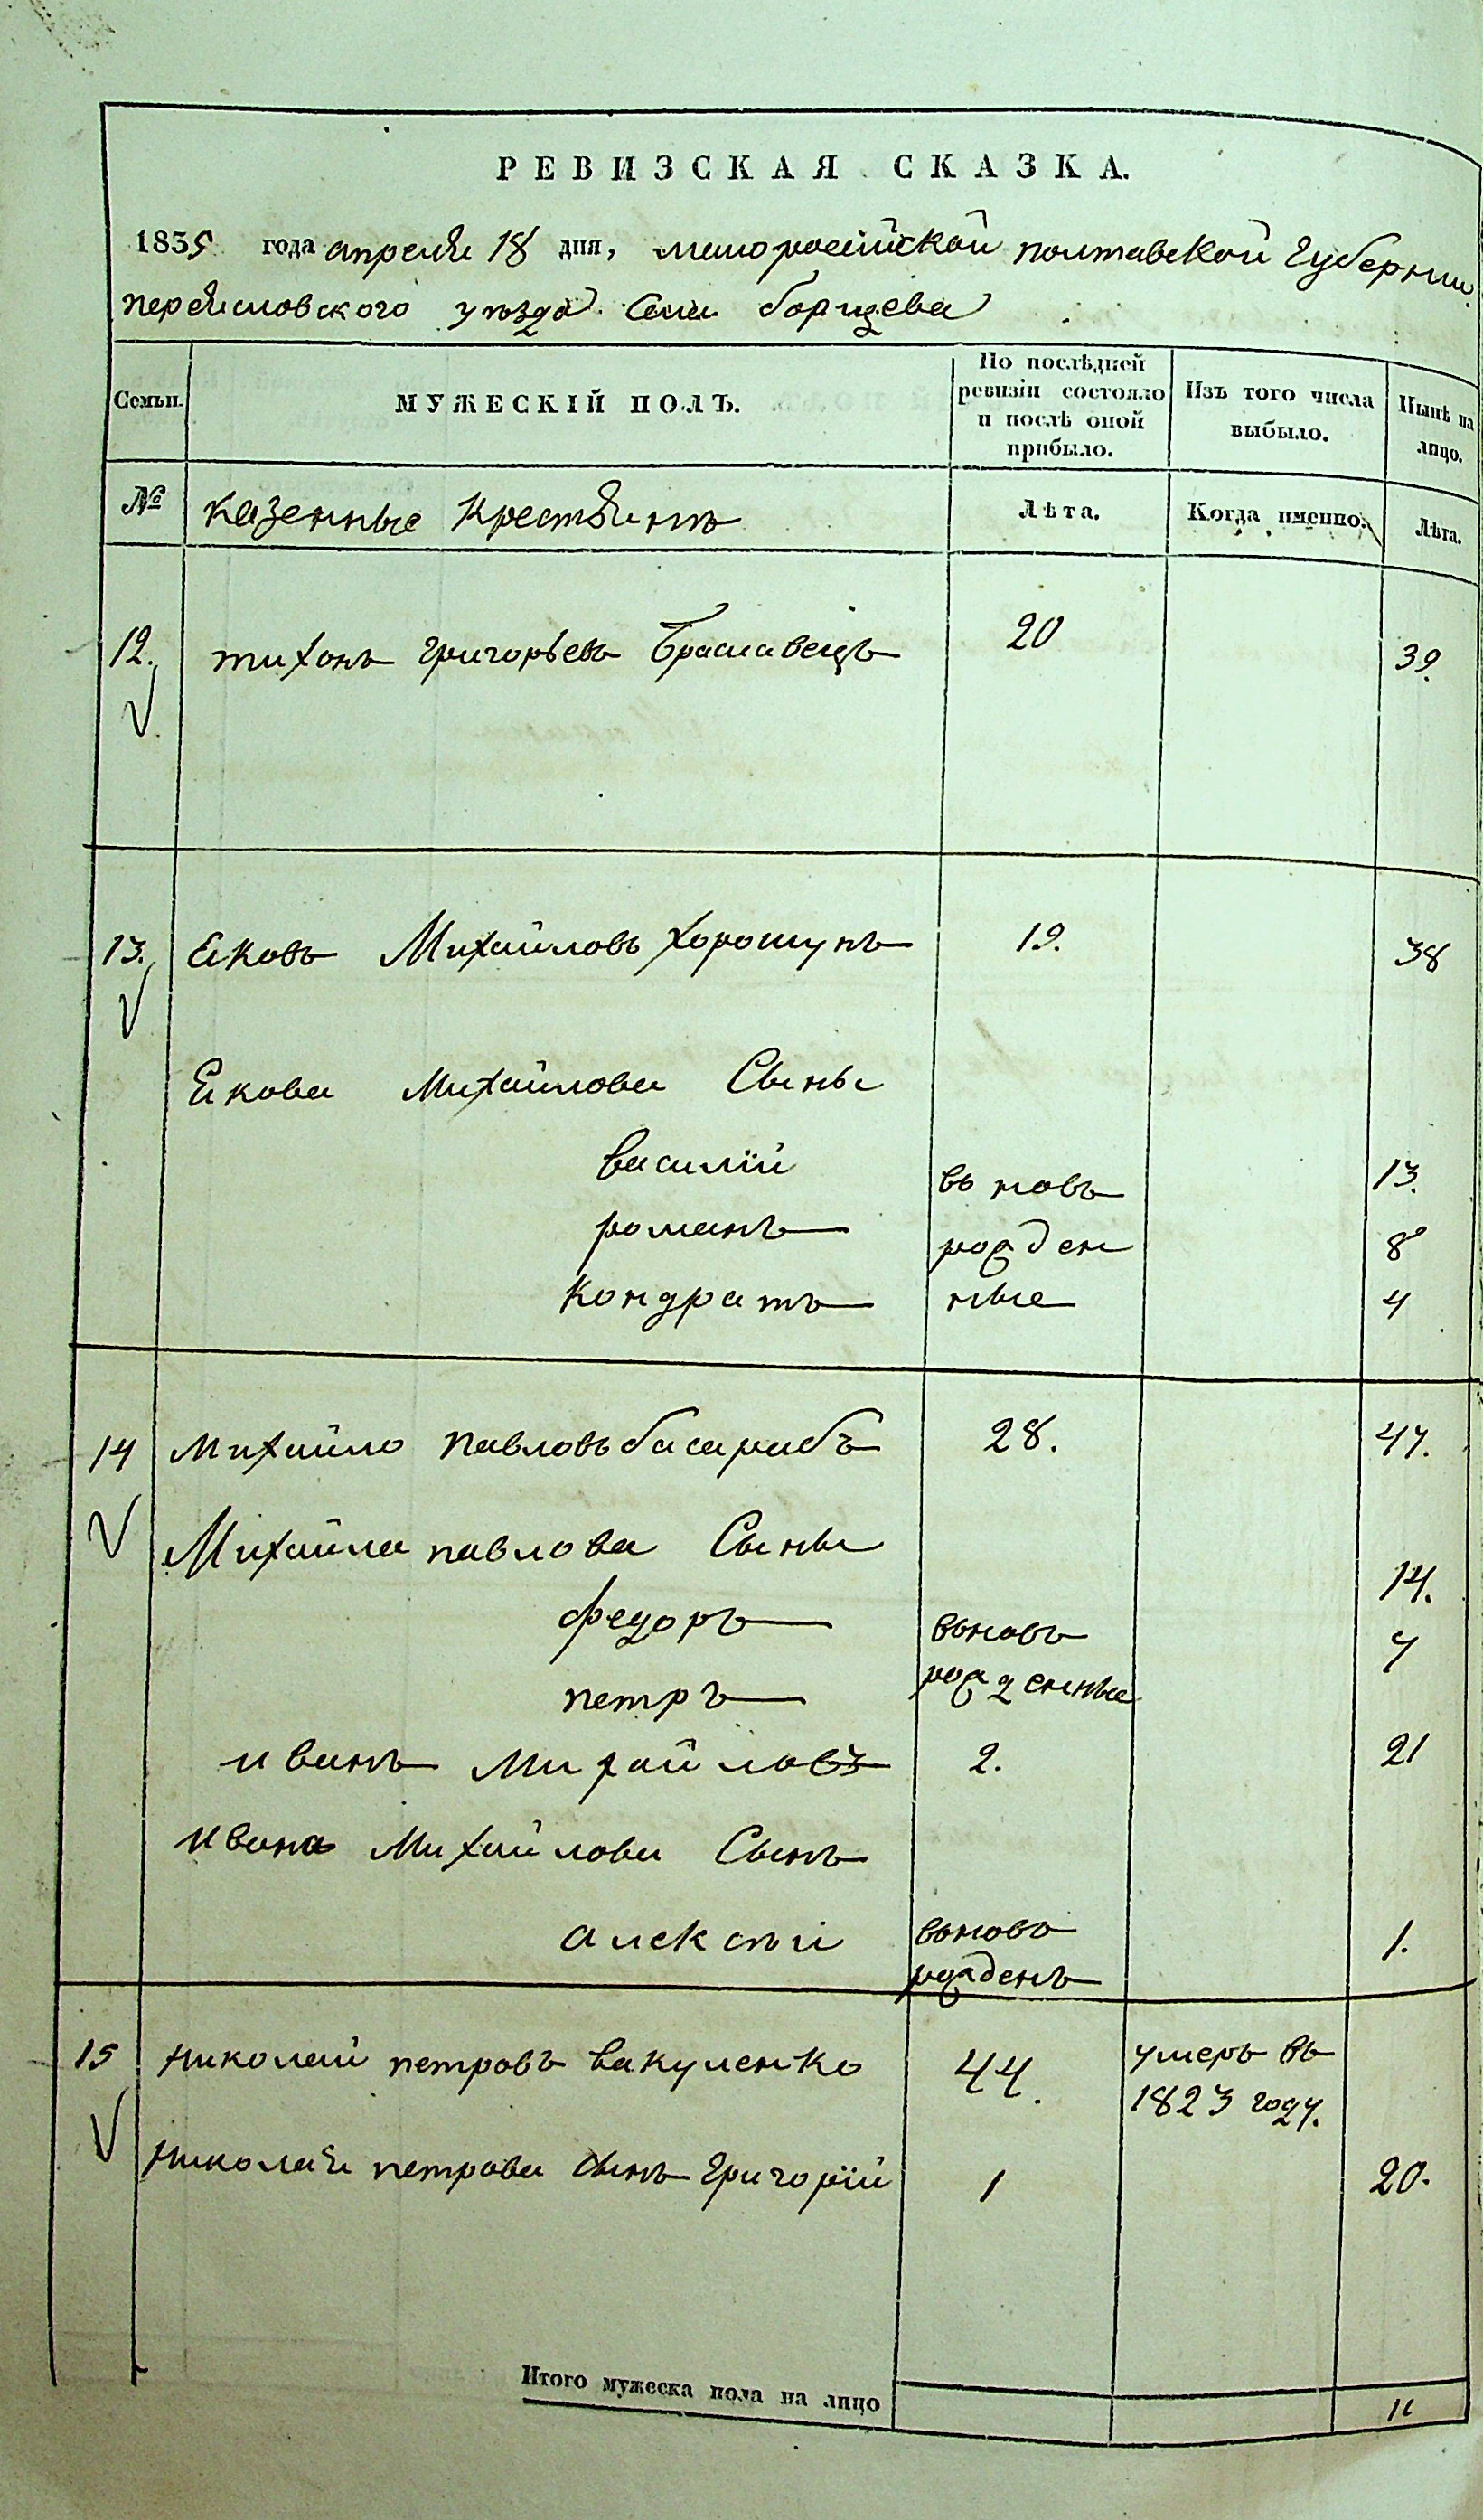 РЕВИЗСКАЯ СКАЗКА.
1835 года апреля 18 дня, малоросийской полтавской губернии
переяловского уезда села борщева
Семьи.
МУЖЕСКІЙ ПОЛЪ.
По послѣдней ревизіи состояло и послѣ оной прибыло.
Изъ того числа выбыло.
Нынѣ на лицо.
№ казенные крестьянъ Лѣта. Когда именно. Лѣта.
12. тихонъ григорьевъ Браславецъ 20 39.
13. Яковъ Михайловъ хорошунъ 19. 38
Якова Михайлова Сыны
василій въ новь 13.
романъ рожден 8
Кондратъ ные 4
14 михайло павловъ басарабъ 28. 47.
Михайла павлова Сыны
14.
федоръ вьновь
7
петръ рожденные
иванъ Михайловъ 2. 21
ивана Михайлова Сынъ
алексѣй вьново 1.
рожденъ
15 николай петровъ вакуленко 44. умеръ въ
1823 году.
николая петрова сынъ григорій 1 20.
Итого мужеска пола на лицо 11